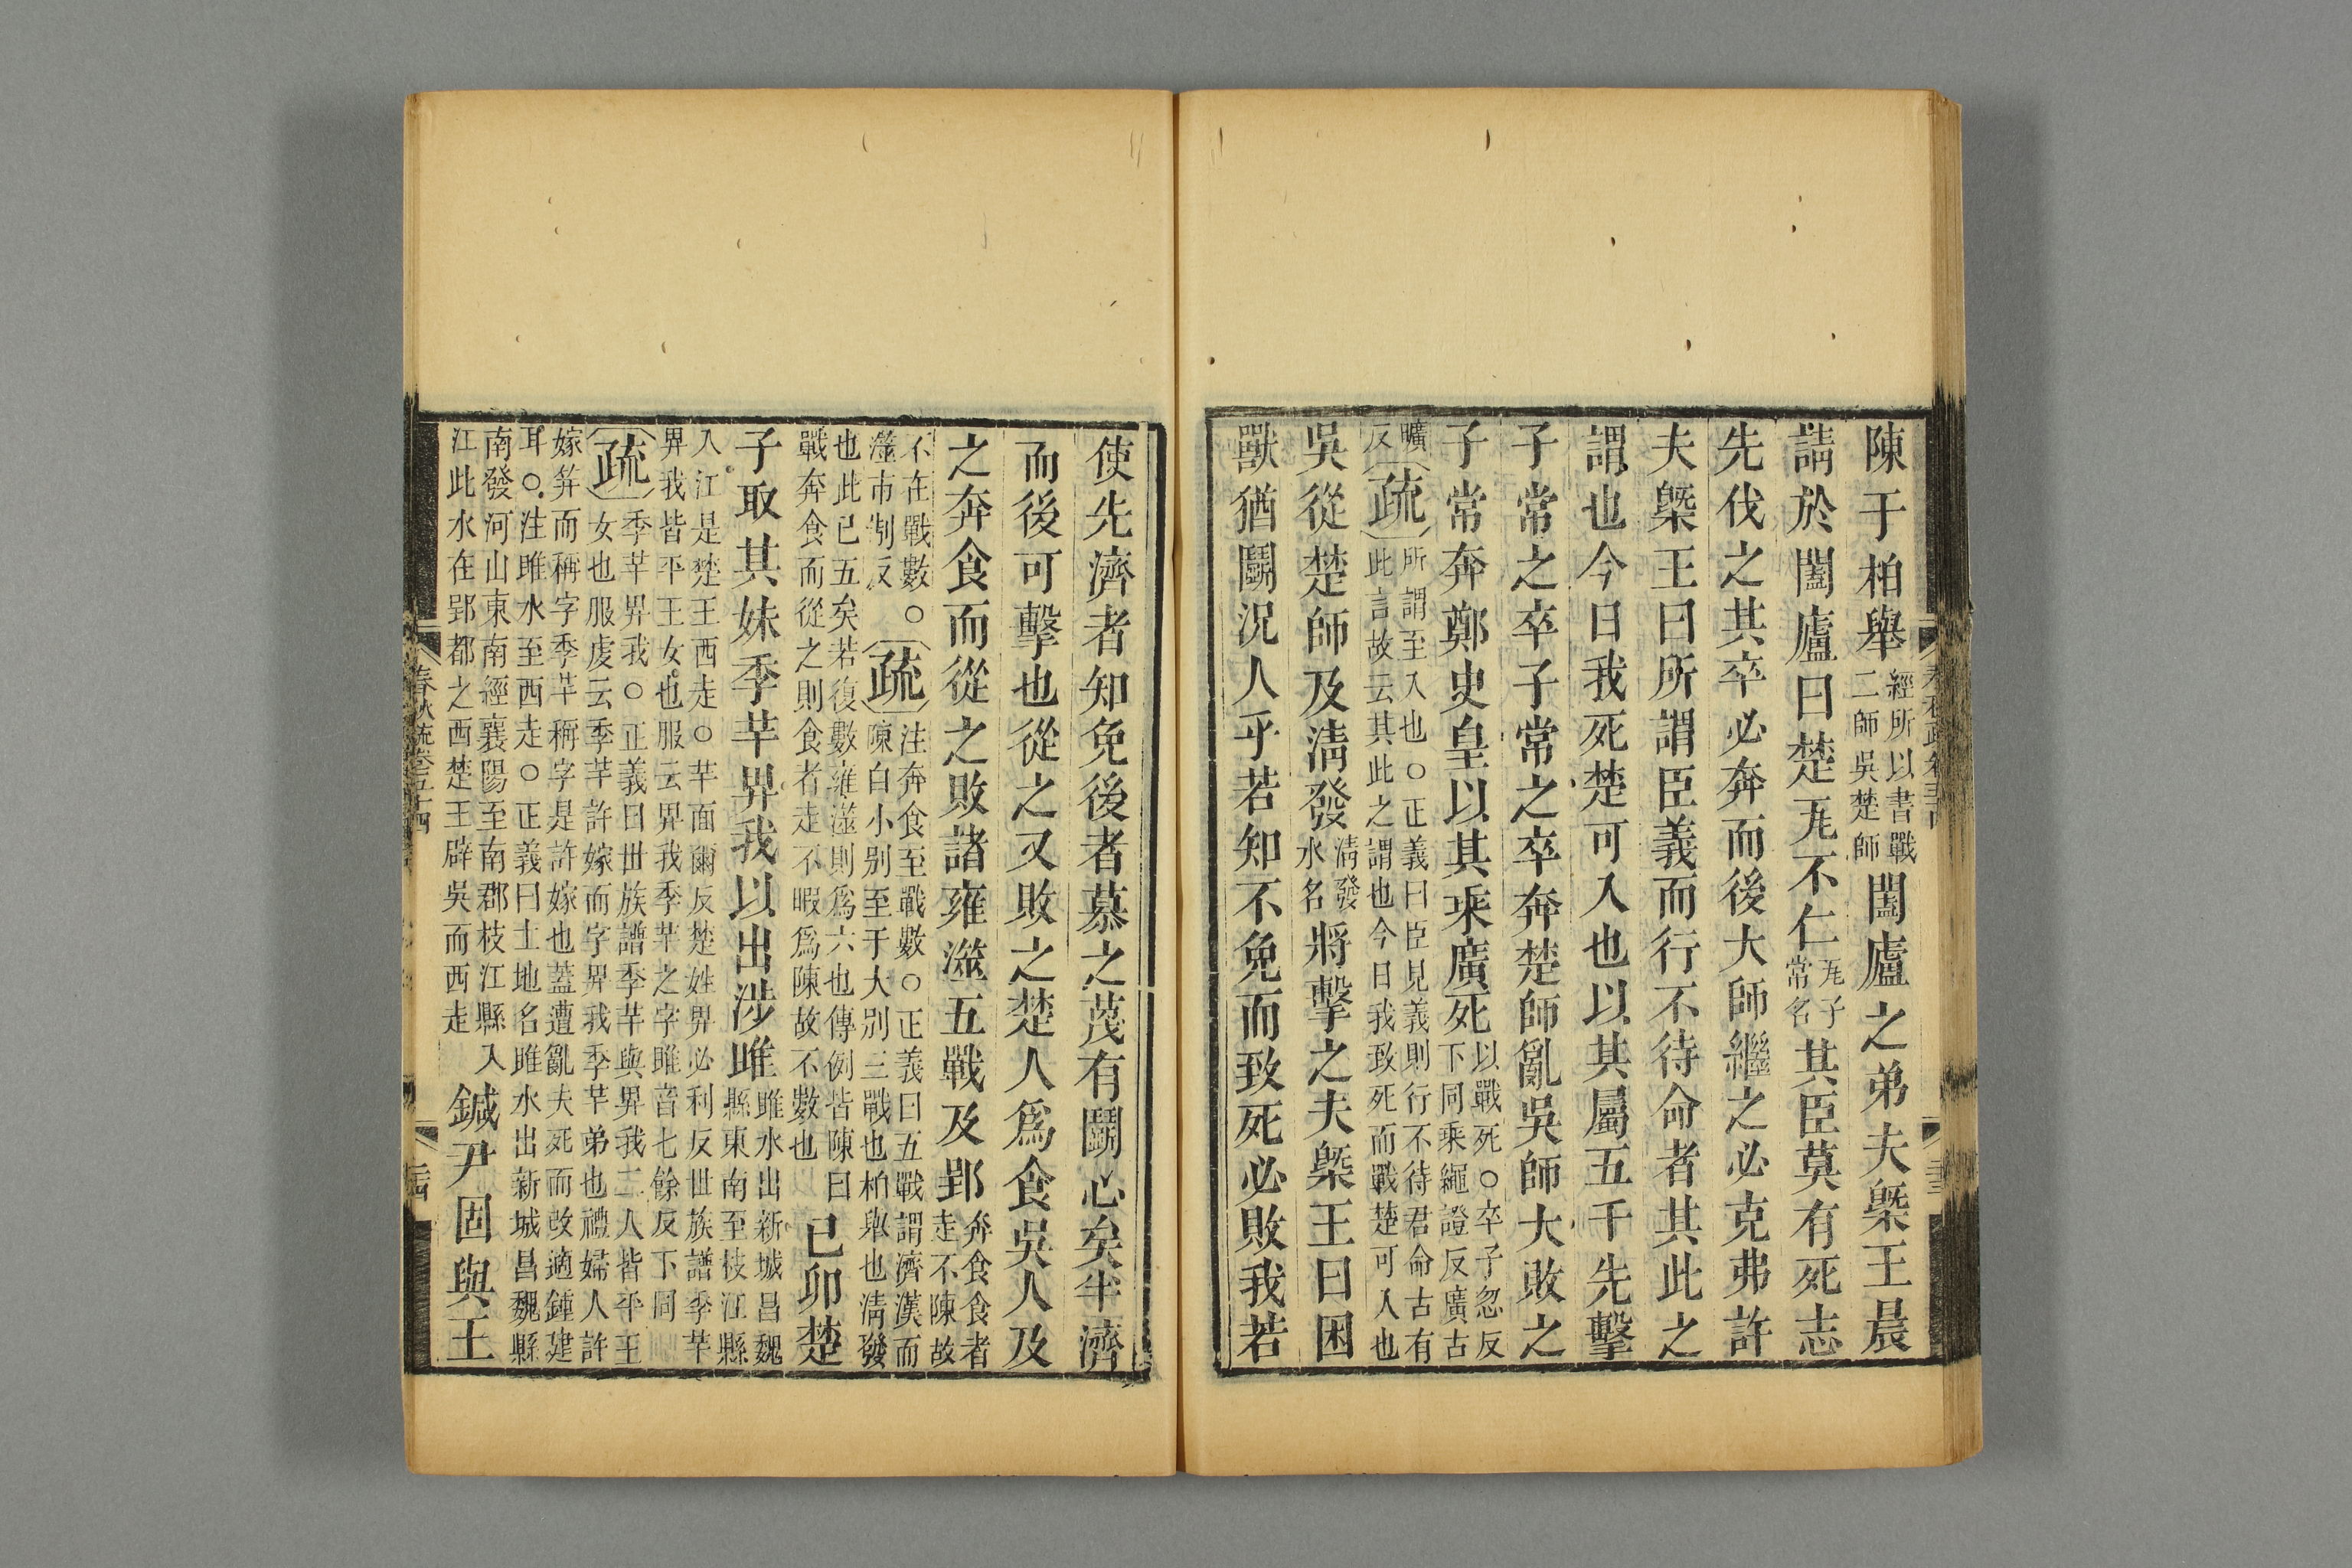 陳于柏舉經所以書戰二師吳楚師闔廬之弟夫槩王晨
請於闔廬曰楚瓦不仁瓦子常名其臣莫有死志
先伐之其卒必奔而後大師繼之必克弗許
夫槩王曰所謂臣義而行不待命者其此之
謂也今日我死楚可入也以其屬五千先擊
子常之卒子常之卒奔楚師亂吳師大敗之
子常奔鄭史皇以其乘廣死以戰死○卒子忽反下同乘繩證反廣古
曠反疏所謂至入也○正義曰臣見義則行不待君命古有此言故云其此之謂也今日我致死而戰楚可入也
吳從楚師及淸發淸發水名將擊之夫槩王曰困
獸猶鬭況人乎若知不免而致死必敗我若
使先濟者知免後者慕之蔑有鬭心矣半濟
而後可擊也從之又敗之楚人爲食吳人及
之奔食而從之敗諸雍澨五戰及郢奔食食者走不陳故
不在戰數○澨市制反疏注奔食至戰數○正義曰五戰謂濟漢而陳自小别至于大別三戰也柏舉也淸發
也此已五矣若復數雍澨則爲六也傳例皆陳曰戰奔食而從之則食者走不暇爲陳故不數也己卯楚
子取其妹季芈畀我以出涉睢睢水出新城昌魏縣東南至枝江縣
入江是楚王西走○芈面爾反楚姓畀必利反世族譜季芈畀我皆平王女也服云畀我季芈之字睢音七餘反下同
疏季芈畀我○正義曰世族譜季芈與畀我二人皆平王女也服虔云季芈許嫁而字畀我季芈弟也禮婦人許
嫁筓而稱字季芈稱字是許嫁也蓋遭亂夫死而改適鍾建耳○注睢水至西走○正義曰土地名睢水出新城昌魏縣
南發河山東南經襄陽至南郡枝江縣入江此水在郢都之西楚王辟吳而西走鍼尹固與王
春秋疏卷五十四